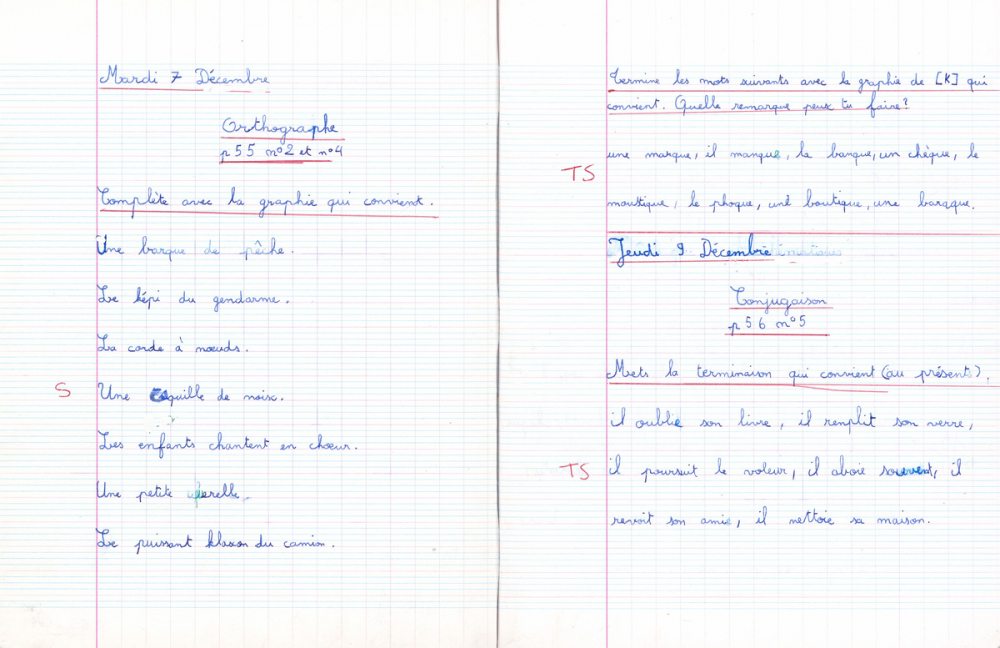 Mardi 7 Décembre
Orthographe
p 55 n°2 et n°4
Complète avec la graphie qui convient.
Une barque de pêche.
Le képi du gendarme.
La corde à nœuds.
S
Une coquille de noix.
Les enfants chantent en chœur.
Une petite querelle.
Le puissant klaxon du camion.
Termine les mots suivants avec la graphie de [K] qui
convient. Quelle remarque peux tu faire?
une marque, il manque, la banque, un chèque, le
TS
moustique, le phoque, une boutique, une baraque.
Jeudi 9 Décembre
Conjugaison
p 56 n°5
Mets la terminaison qui convient (au présent).
il oublie son livre, il remplit son verre,
TS
il poursuit le voleur, il aboie souvent, il
revoit son amie, il nettoie sa maison.